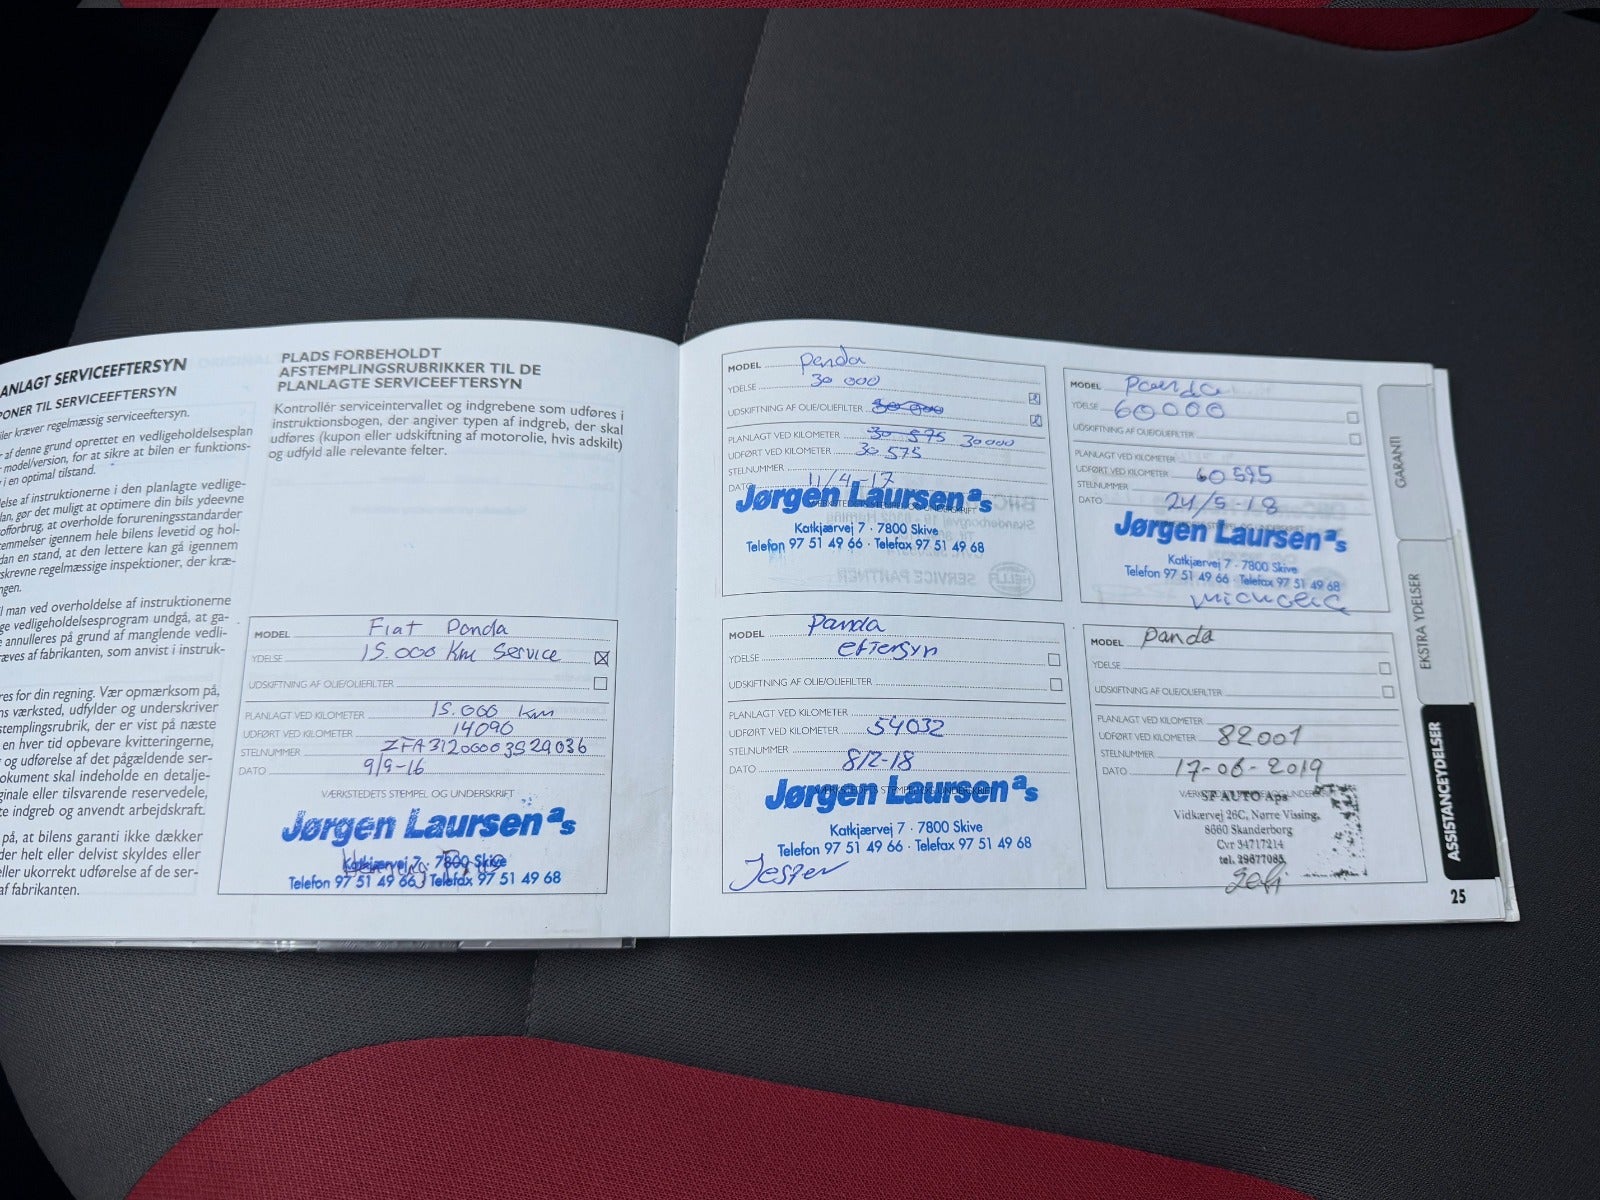 ANLAGT SERVICEEFTERSYN
PONER TIL SERVICEEFTERSYN
iler kræver regelmæssig serviceeftersyn.
af denne grund oprettet en vedligeholdelsesplan
model/version, for at sikre at bilen er funktions-
i en optimal tilstand.
else af instruktionerne i den planlagte vedlige-
lan, gør det muligt at optimere din bils ydeevne
offorbrug, at overholde forureningsstandarder
temmelser igennem hele bilens levetid og hol-
dan en stand, at den lettere kan gå igennem
skrevne regelmæssige inspektioner, der kræ-
ngen.
l man ved overholdelse af instruktionerne
ge vedligeholdelsesprogram undgå, at ga-
e annulleres på grund af manglende vedli-
ræves af fabrikanten, som anvist i instruk-
res for din regning. Vær opmærksom på,
ns værksted, udfylder og underskriver
stemplingsrubrik, der er vist på næste
en hver tid opbevare kvitteringerne,
og udførelse af det pågældende ser-
okument skal indeholde en detalje-
ginale eller tilsvarende reservedele,
te indgreb og anvendt arbejdskraft.
på, at bilens garanti ikke dækker
der helt eller delvist skyldes eller
eller ukorrekt udførelse af de ser-
af fabrikanten.
PLADS FORBEHOLDT
AFSTEMPLINGSRUBRIKKER TIL DE
PLANLAGTE SERVICEEFTERSYN
Kontrollér serviceintervallet og indgrebene som udføres i
instruktionsbogen, der angiver typen af indgreb, der skal
udføres (kupon eller udskiftning af motorolie, hvis adskilt)
og udfyld alle relevante felter.
MODEL Fiat Panda
YDELSE 15.000 Km Service
UDSKIFTNING AF OLIE/OLIEFILTER
PLANLAGT VED KILOMETER 15.000 Km
UDFØRT VED KILOMETER 14090
STELNUMMER ZFA31200003S29036
DATO 9/9-16
VÆRKSTEDETS STEMPEL OG UNDERSKRIFT
Jørgen Laursen a/s
Katkjærvej 7 · 7800 Skive
Telefon 97 51 49 66 · Telefax 97 51 49 68
MODEL Panda
YDELSE 30 000
UDSKIFTNING AF OLIE/OLIEFILTER 30 000
PLANLAGT VED KILOMETER 30 575 30000
UDFØRT VED KILOMETER 30 575
STELNUMMER
DATO 11/4-17
Jørgen Laursen a/s
Katkjærvej 7 · 7800 Skive
Telefon 97 51 49 66 · Telefax 97 51 49 68
SERVICE PARTNER
HELLA
MODEL Panda
YDELSE 60000
UDSKIFTNING AF OLIE/OLIEFILTER
PLANLAGT VED KILOMETER
UDFØRT VED KILOMETER 60595
STELNUMMER
DATO 24/5-18
Jørgen Laursen a/s
Katkjærvej 7 · 7800 Skive
Telefon 97 51 49 66 · Telefax 97 51 49 68
MODEL Panda
YDELSE eftersyn
UDSKIFTNING AF OLIE/OLIEFILTER
PLANLAGT VED KILOMETER
UDFØRT VED KILOMETER 54032
STELNUMMER
DATO 8/2-18
Jørgen Laursen a/s
Katkjærvej 7 · 7800 Skive
Telefon 97 51 49 66 · Telefax 97 51 49 68
Jesper
MODEL Panda
YDELSE
UDSKIFTNING AF OLIE/OLIEFILTER
PLANLAGT VED KILOMETER
UDFØRT VED KILOMETER 82001
STELNUMMER
DATO 17-06-2019
SF AUTO Aps
Vidkærvej 26C, Nørre Vissing,
8660 Skanderborg
Cvr 34717214
tel. 29677083,
GARANTI
EKSTRA YDELSER
ASSISTANCEYDELSER
25